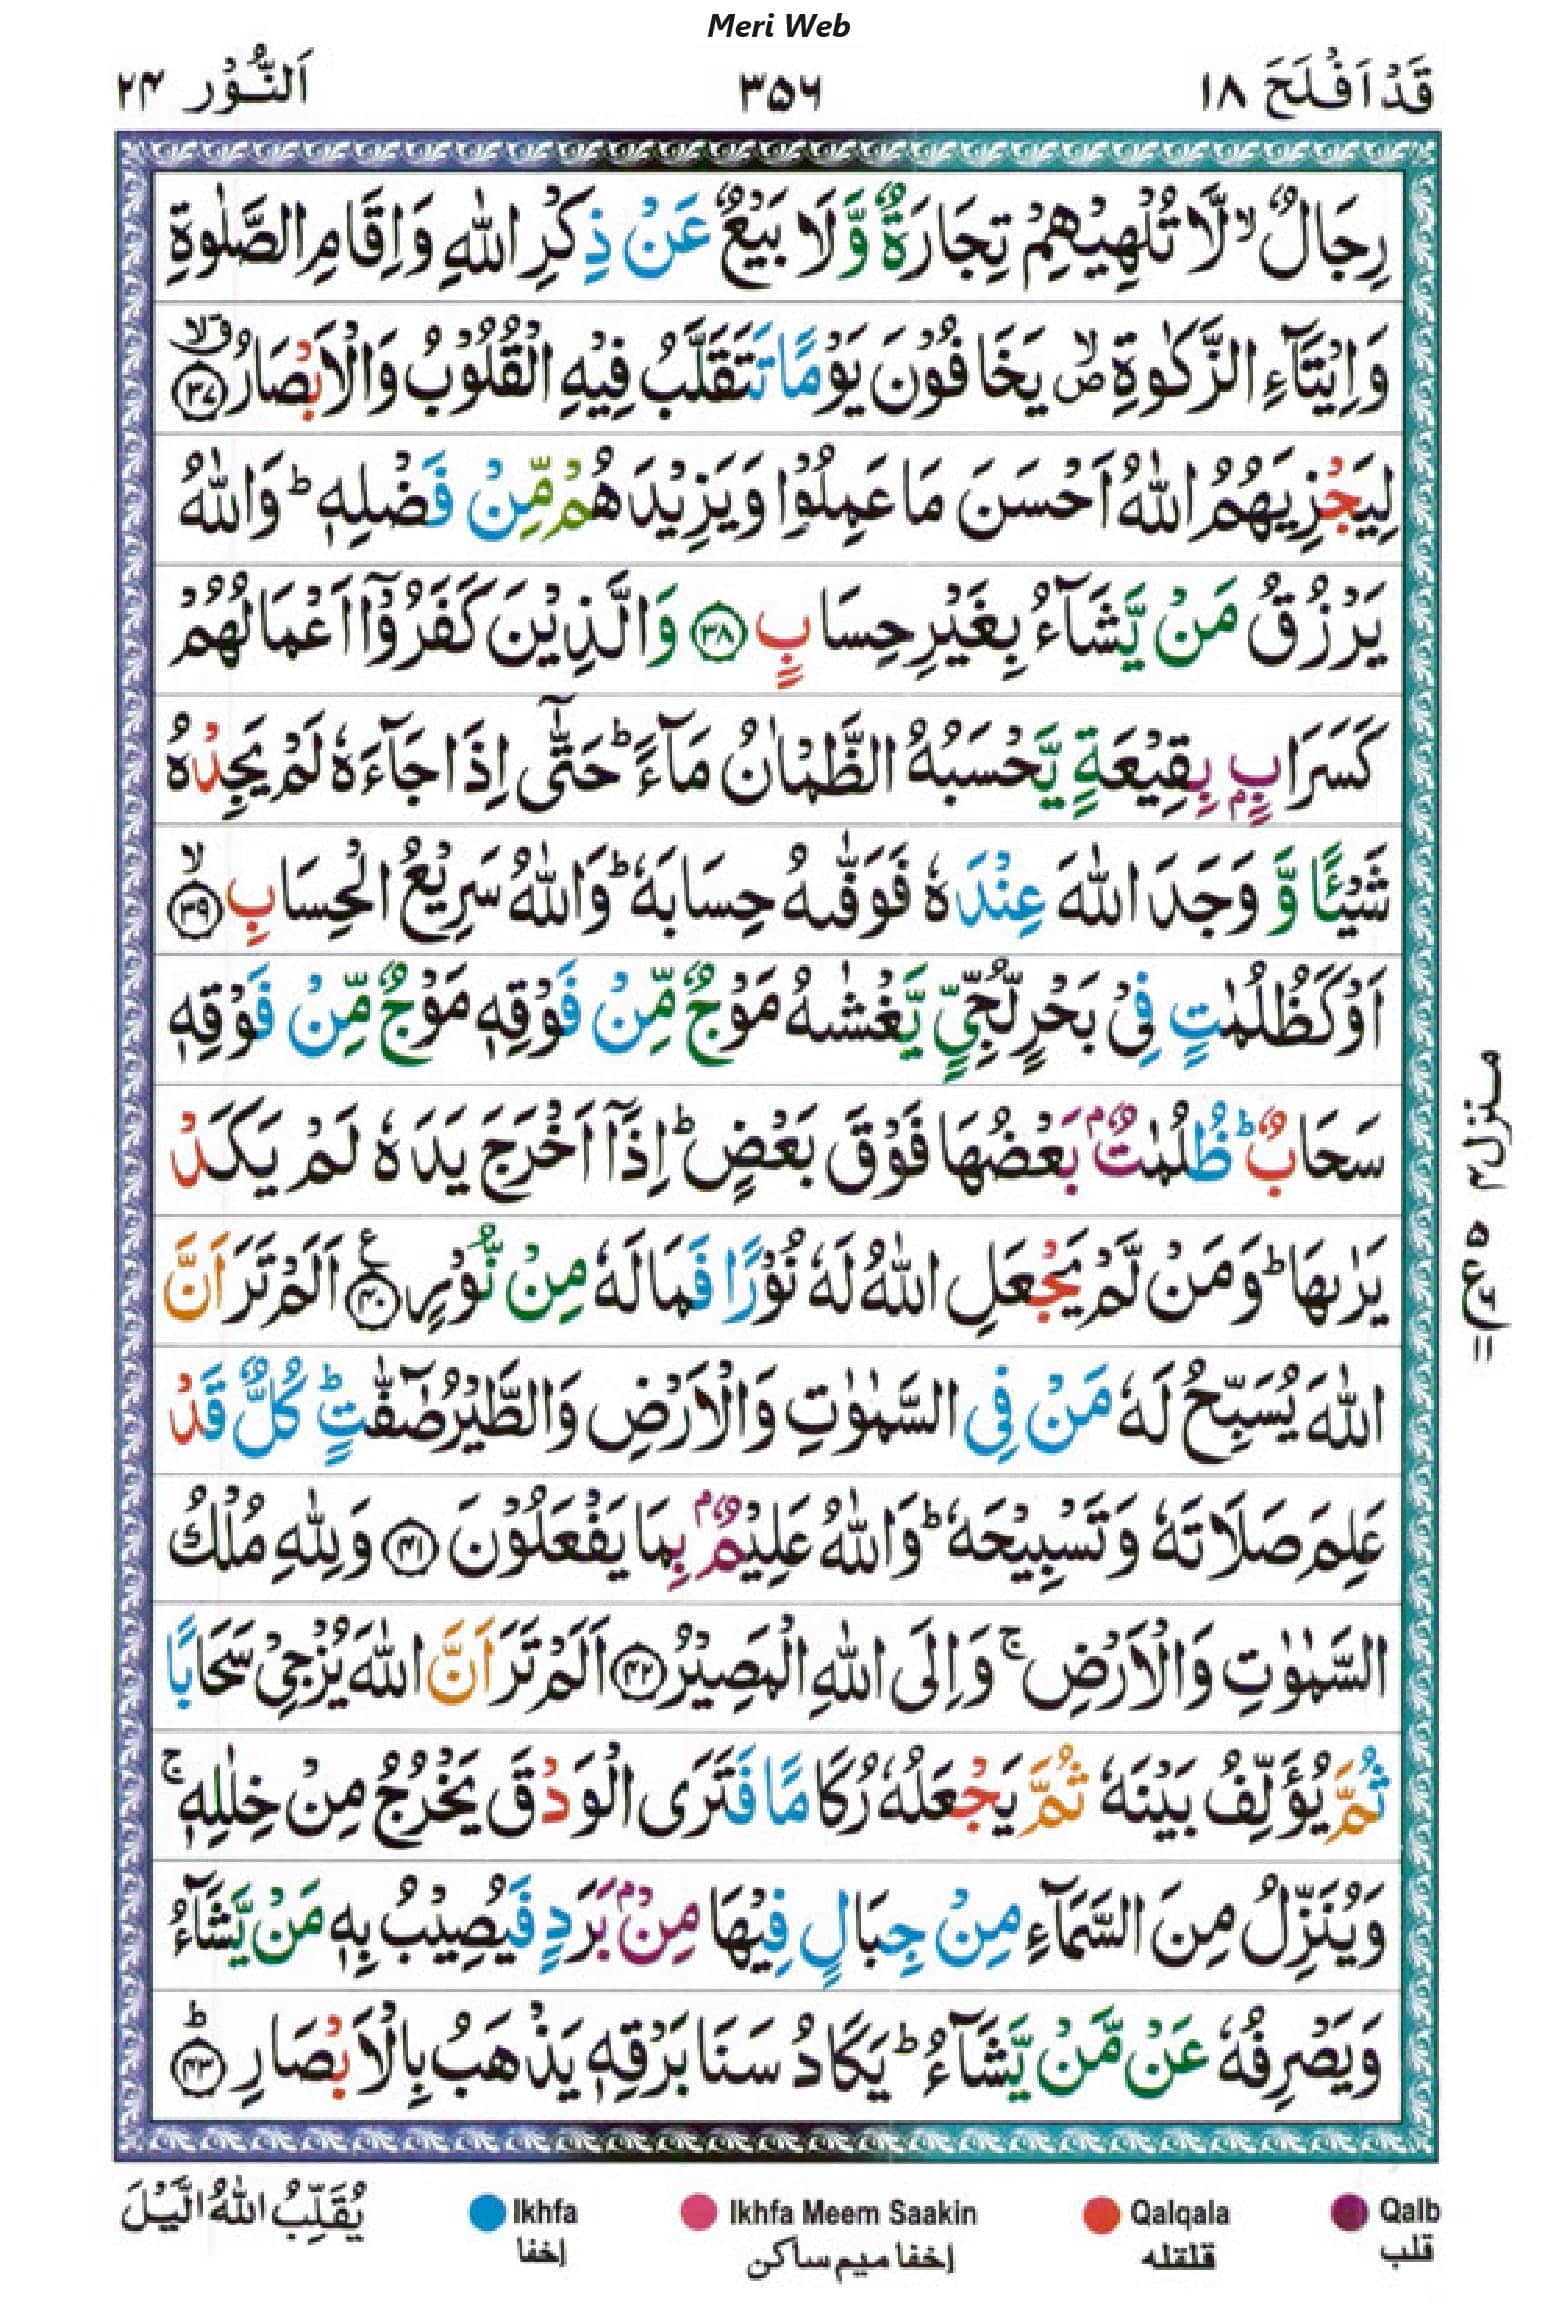 Meri Web
قَدْ اَفْلَحَ ۱۸ ۳۵۶ اَلنُّوْر ۲۴
رِجَالٌ ۙ لَّا تُلْهِیْهِمْ تِجَارَةٌ وَّ لَا بَیْعٌ عَنْ ذِكْرِ اللّٰهِ وَ اِقَامِ الصَّلٰوةِ
وَ اِیْتَآءِ الزَّكٰوةِ ۪ۙ یَخَافُوْنَ یَوْمًا تَتَقَلَّبُ فِیْهِ الْقُلُوْبُ وَ الْاَبْصَارُ ﴿۳۷﴾ۗۙ
لِیَجْزِیَهُمُ اللّٰهُ اَحْسَنَ مَا عَمِلُوْا وَ یَزِیْدَهُمْ مِّنْ فَضْلِهٖ ؕ وَ اللّٰهُ
یَرْزُقُ مَنْ یَّشَآءُ بِغَیْرِ حِسَابٍ ﴿۳۸﴾ وَ الَّذِیْنَ كَفَرُوْۤا اَعْمَالُهُمْ
كَسَرَابٍۭ بِقِیْعَةٍ یَّحْسَبُهُ الظَّمْاٰنُ مَآءً ؕ حَتّٰۤی اِذَا جَآءَهٗ لَمْ یَجِدْهُ
شَیْـًٔا وَّ وَجَدَ اللّٰهَ عِنْدَهٗ فَوَفّٰىهُ حِسَابَهٗ ؕ وَ اللّٰهُ سَرِیْعُ الْحِسَابِ ﴿۳۹﴾ۙ
اَوْ كَظُلُمٰتٍ فِیْ بَحْرٍ لُّجِّیٍّ یَّغْشٰىهُ مَوْجٌ مِّنْ فَوْقِهٖ مَوْجٌ مِّنْ فَوْقِهٖ
سَحَابٌ ؕ ظُلُمٰتٌۢ بَعْضُهَا فَوْقَ بَعْضٍ ؕ اِذَاۤ اَخْرَجَ یَدَهٗ لَمْ یَكَدْ
یَرٰىهَا ؕ وَ مَنْ لَّمْ یَجْعَلِ اللّٰهُ لَهٗ نُوْرًا فَمَا لَهٗ مِنْ نُّوْرٍ ﴿۴۰﴾ع اَلَمْ تَرَ اَنَّ
اللّٰهَ یُسَبِّحُ لَهٗ مَنْ فِی السَّمٰوٰتِ وَ الْاَرْضِ وَ الطَّیْرُ صٰٓفّٰتٍ ؕ كُلٌّ قَدْ
عَلِمَ صَلَاتَهٗ وَ تَسْبِیْحَهٗ ؕ وَ اللّٰهُ عَلِیْمٌۢ بِمَا یَفْعَلُوْنَ ﴿۴۱﴾ وَ لِلّٰهِ مُلْكُ
السَّمٰوٰتِ وَ الْاَرْضِ ۚ وَ اِلَی اللّٰهِ الْمَصِیْرُ ﴿۴۲﴾ اَلَمْ تَرَ اَنَّ اللّٰهَ یُزْجِیْ سَحَابًا
ثُمَّ یُؤَلِّفُ بَیْنَهٗ ثُمَّ یَجْعَلُهٗ رُكَامًا فَتَرَی الْوَدْقَ یَخْرُجُ مِنْ خِلٰلِهٖ ۚ
وَ یُنَزِّلُ مِنَ السَّمَآءِ مِنْ جِبَالٍ فِیْهَا مِنْۢ بَرَدٍ فَیُصِیْبُ بِهٖ مَنْ یَّشَآءُ
وَ یَصْرِفُهٗ عَنْ مَّنْ یَّشَآءُ ؕ یَكَادُ سَنَا بَرْقِهٖ یَذْهَبُ بِالْاَبْصَارِ ﴿۴۳﴾ؕ
منزل ۴
یُقَلِّبُ اللّٰهُ الَّیْلَ
Ikhfa Ikhfa Meem Saakin Qalqala Qalb
إخفا إخفا میم ساکن قلقله قلب